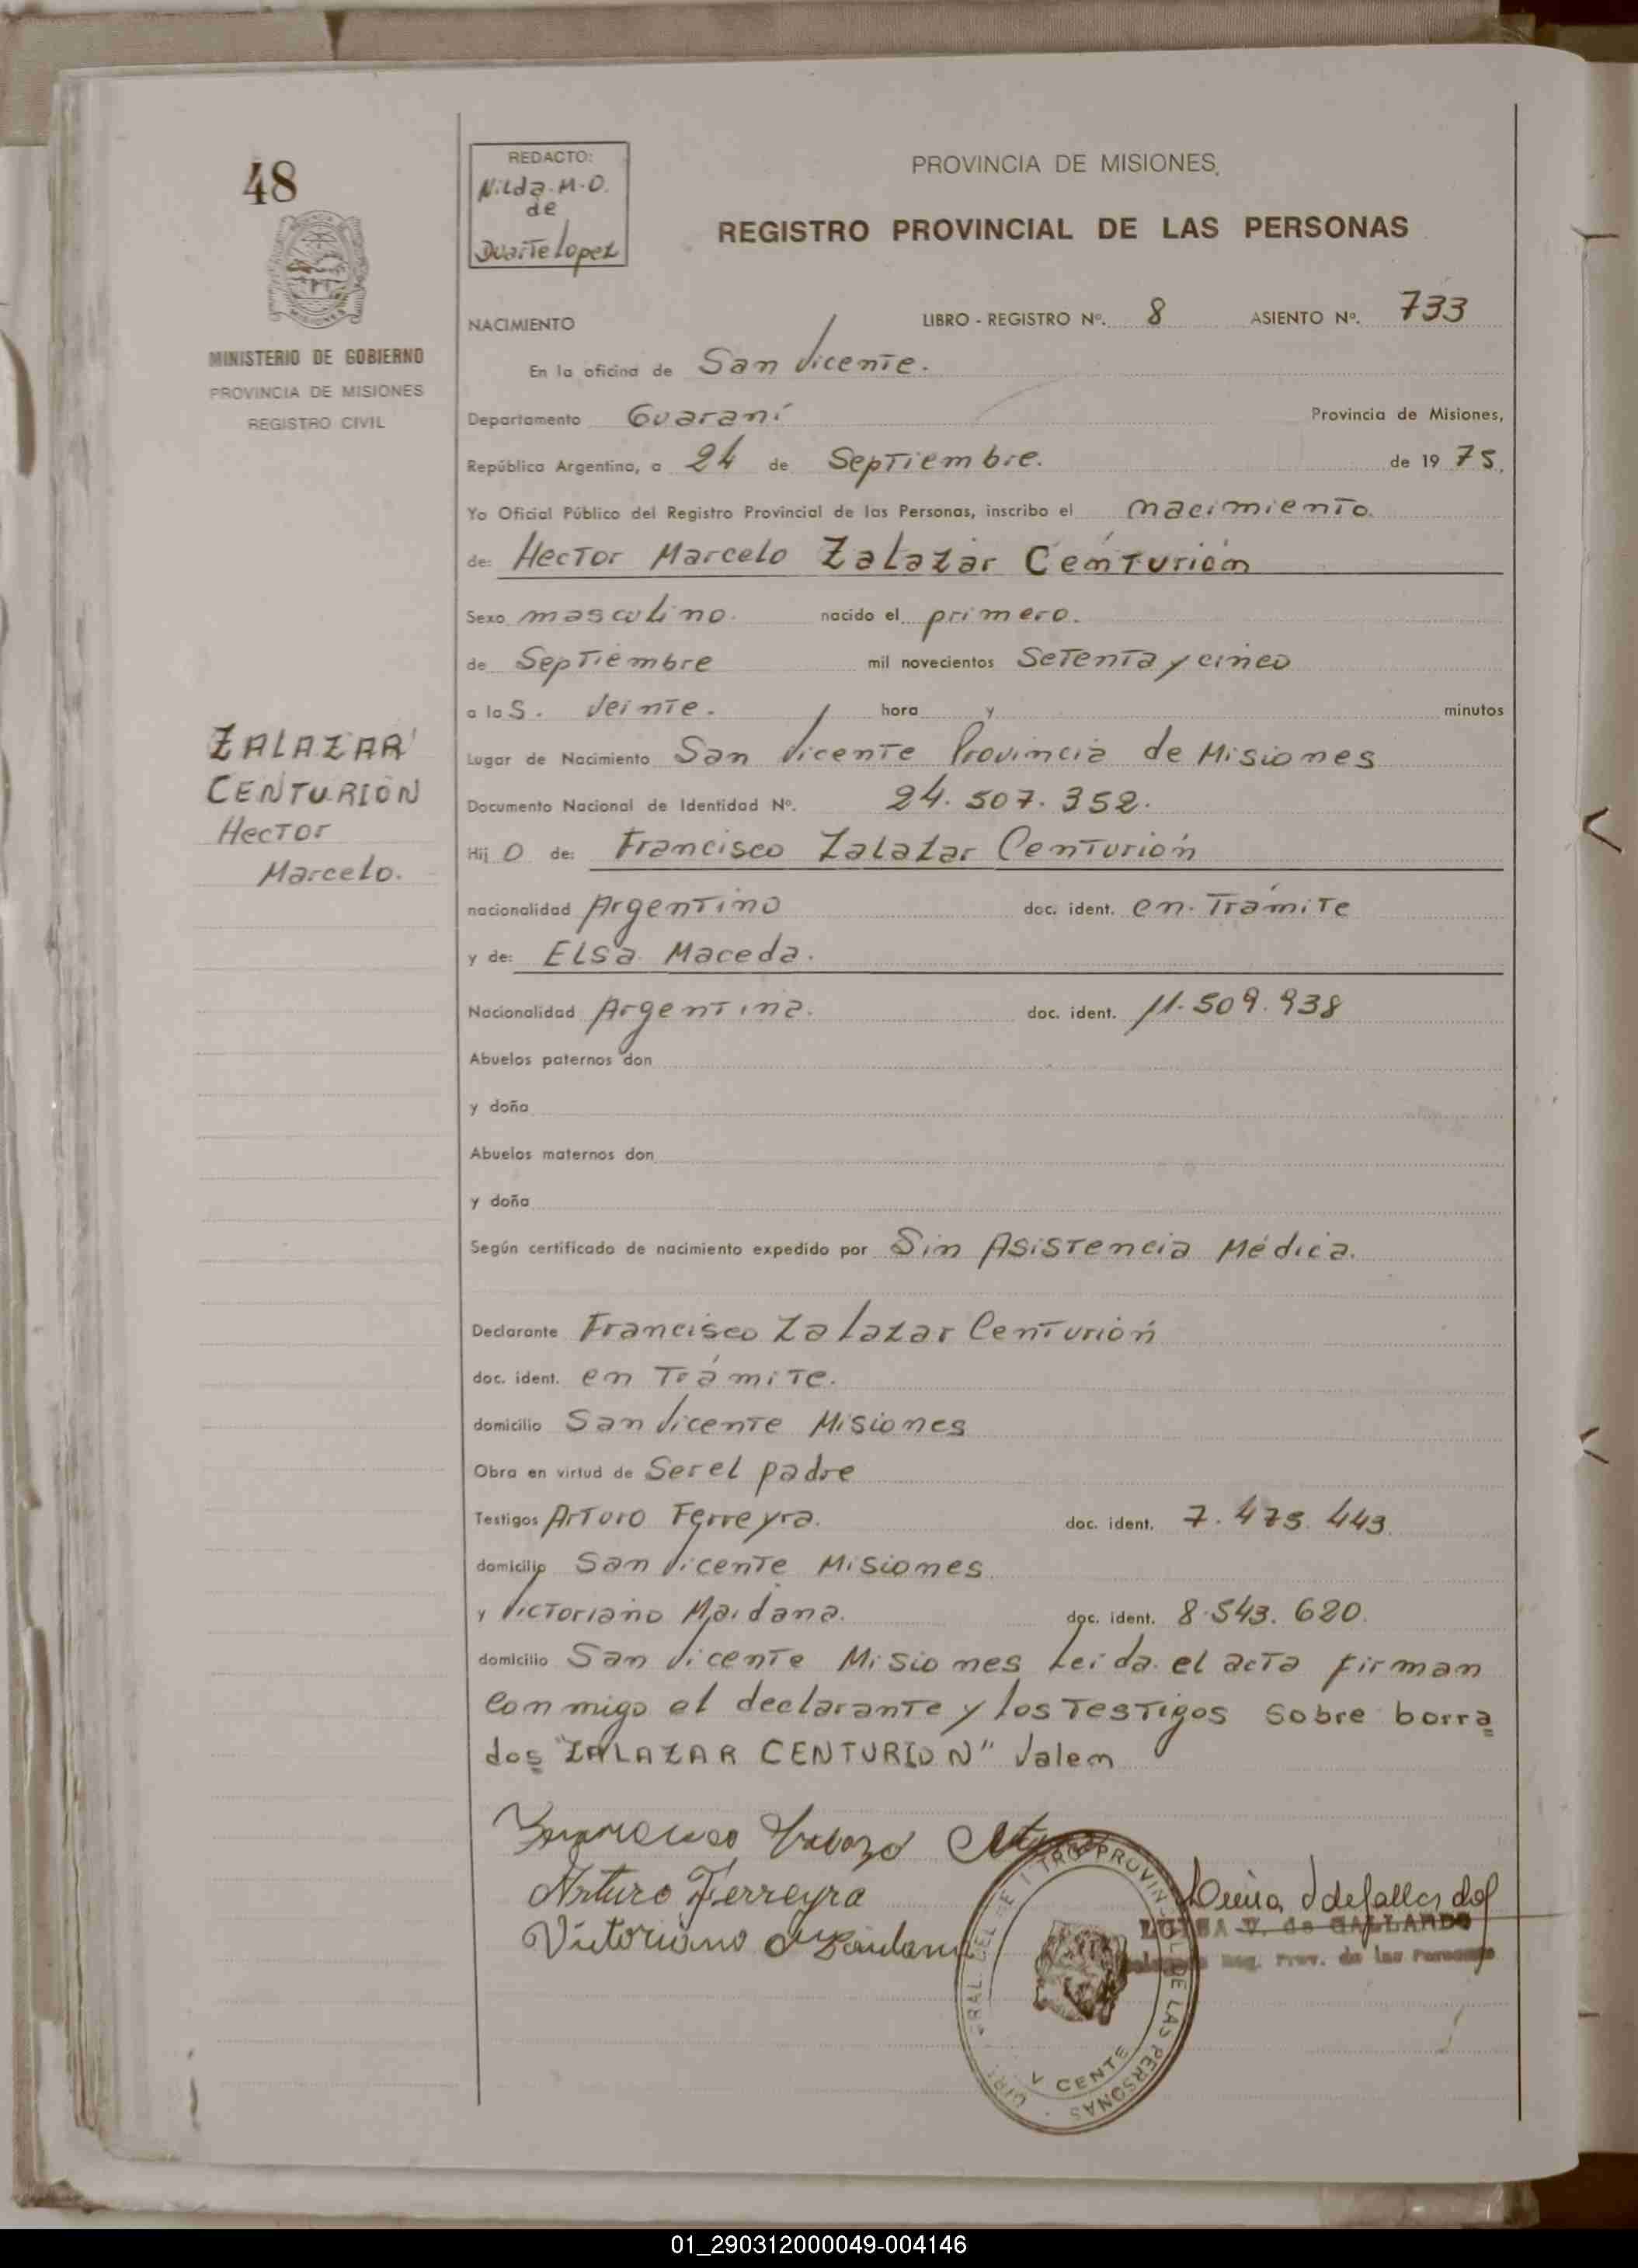 48
MINISTERIO DE GOBIERNO
PROVINCIA DE MISIONES
REGISTRO CIVIL
ZALAZAR
CENTURIÓN
Hector
Marcelo.
REDACTO:
Nilda. M. O.
de
Duarte Lopez
PROVINCIA DE MISIONES
REGISTRO PROVINCIAL DE LAS PERSONAS
NACIMIENTO LIBRO - REGISTRO Nº. 8 ASIENTO Nº. 733
En la oficina de San Vicente.
Departamento Guaraní Provincia de Misiones,
República Argentina, a 24 de Septiembre. de 19 75.
Yo Oficial Público del Registro Provincial de las Personas, inscribo el nacimiento
de: Hector Marcelo Zalazar Centurión
Sexo masculino. nacido el primero.
de Septiembre mil novecientos Setenta y cinco
a las. Veinte. hora y minutos
Lugar de Nacimiento San Vicente Provincia de Misiones
Documento Nacional de Identidad Nº. 24.507.352.
Hijo de: Francisco Zalazar Centurión
nacionalidad Argentino doc. ident. en Trámite
y de: Elsa Maceda.
Nacionalidad Argentina. doc. ident. 11.509.938
Abuelos paternos don
y doña
Abuelos maternos don
y doña
Según certificado de nacimiento expedido por Sin Asistencia Médica.
Declarante Francisco Zalazar Centurión
doc. ident. en Trámite.
domicilio San Vicente Misiones
Obra en virtud de Ser el padre
Testigos Arturo Ferreyra. doc. ident. 7.475.443.
domicilio San Vicente Misiones
y Victoriano Maidana. doc. ident. 8.543.620.
domicilio San Vicente Misiones Leida el acta firman
Conmigo el declarante y los Testigos Sobre borra
dos "ZALAZAR CENTURION" Valen
Arturo Ferreyra
Victoriano Maidana
LUISA V. de GALLARDO
Reg. Prov. de las Personas
PROVIN DE LAS PERSONAS
V CENTE
01_290312000049-004146